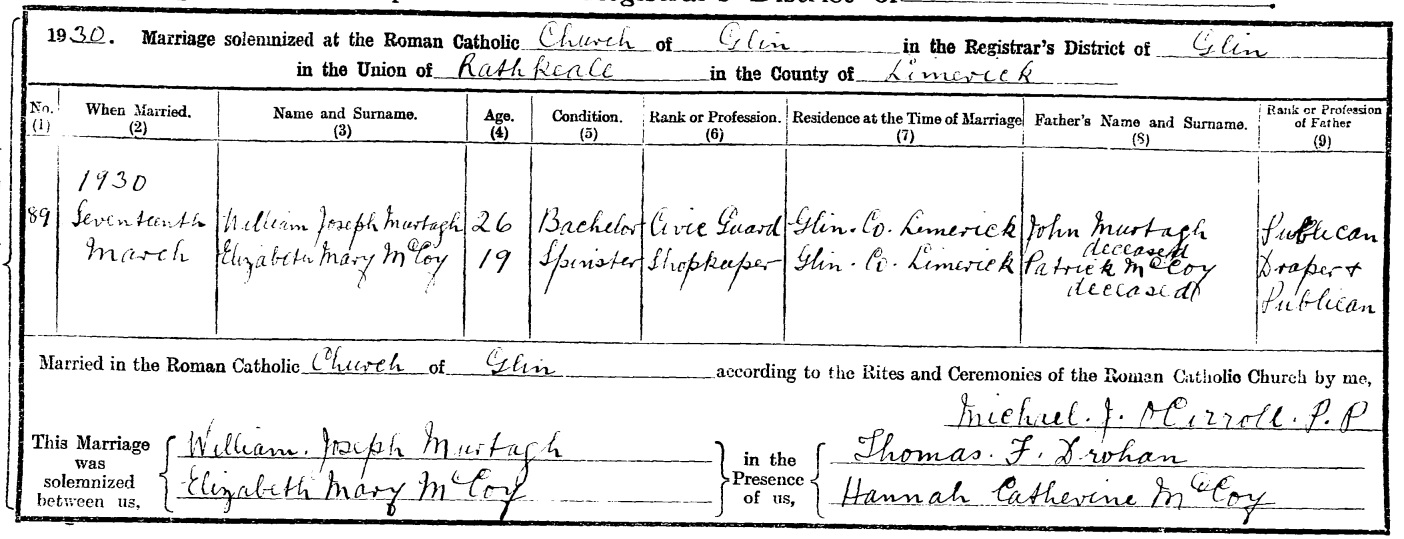 Registrar's District of
1930. Marriage solemnized at the Roman Catholic Church of Glin in the Registrar's District of Glin
in the Union of Rathkeale in the County of Limerick
No. (1) When Married. (2) Name and Surname. (3) Age. (4) Condition. (5) Rank or Profession. (6) Residence at the Time of Marriage (7) Father's Name and Surname. (8) Rank or Profession of Father (9)
1930
89 Seventeenth William Joseph Murtagh 26 Bachelor Civic Guard Glin. Co. Limerick John Murtagh Publican
deceased
March Elizabeth Mary McCoy 19 Spinster Shopkeeper Glin. Co. Limerick Patrick McCoy Draper +
deceased Publican
Married in the Roman Catholic Church of Glin according to the Rites and Ceremonies of the Roman Catholic Church by me,
Michael. J. P.P
This Marriage was solemnized between us, William. Joseph Murtagh in the Presence of us, Thomas. F. Drohan
Elizabeth Mary McCoy Hannah Catherine McCoy